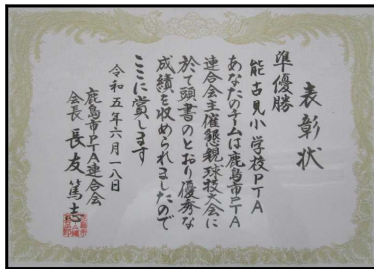 表彰状
準優勝
能古見小学校PTA
あなたのチームは鹿島市PTA
連合会主催懇親球技大会に
於て頭書のとおり優秀な
成績を収められましたので
ここに賞します
令和五年六月一八日
鹿島市PTA連合会
会長 長友篤志